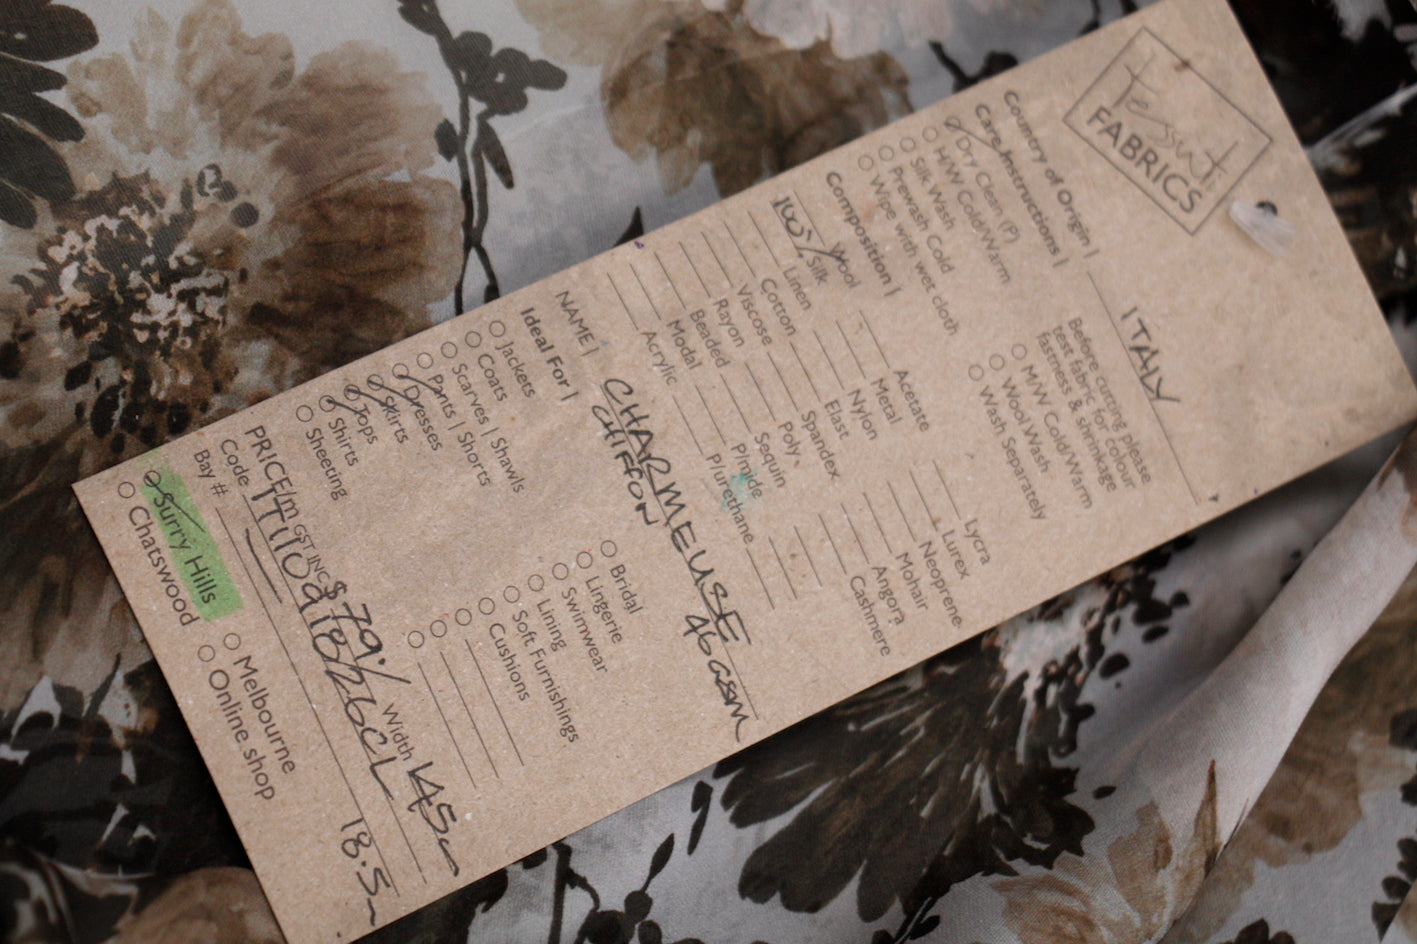 Tessuti
FABRICS
Country of Origin | ITALY
Care Instructions |
Dry Clean (P)
H/W Cold/Warm
Silk Wash
Prewash Cold
Wipe with wet cloth
Before cutting please
test fabric for colour
fastness & shrinkage
M/W Cold/Warm
Wool Wash
Wash Separately
Composition |
Wool
100% Silk
Linen
Cotton
Viscose
Rayon
Beaded
Modal
Acrylic
Acetate
Metal
Nylon
Elast
Spandex
Poly
Sequin
Plmide
Plurethane
Lycra
Lurex
Neoprene
Mohair
Angora
Cashmere
NAME | CHARMEUSE
CHIFFON 46gsm
Ideal For |
Jackets
Coats
Scarves | Shawls
Pants | Shorts
Dresses
Skirts
Tops
Shirts
Sheeting
Bridal
Lingerie
Swimwear
Lining
Soft Furnishings
Cushions
PRICE/m GST INC $79./ Width 145
Code
Bay # 18.5
Surry Hills
Chatswood
Melbourne
Online shop